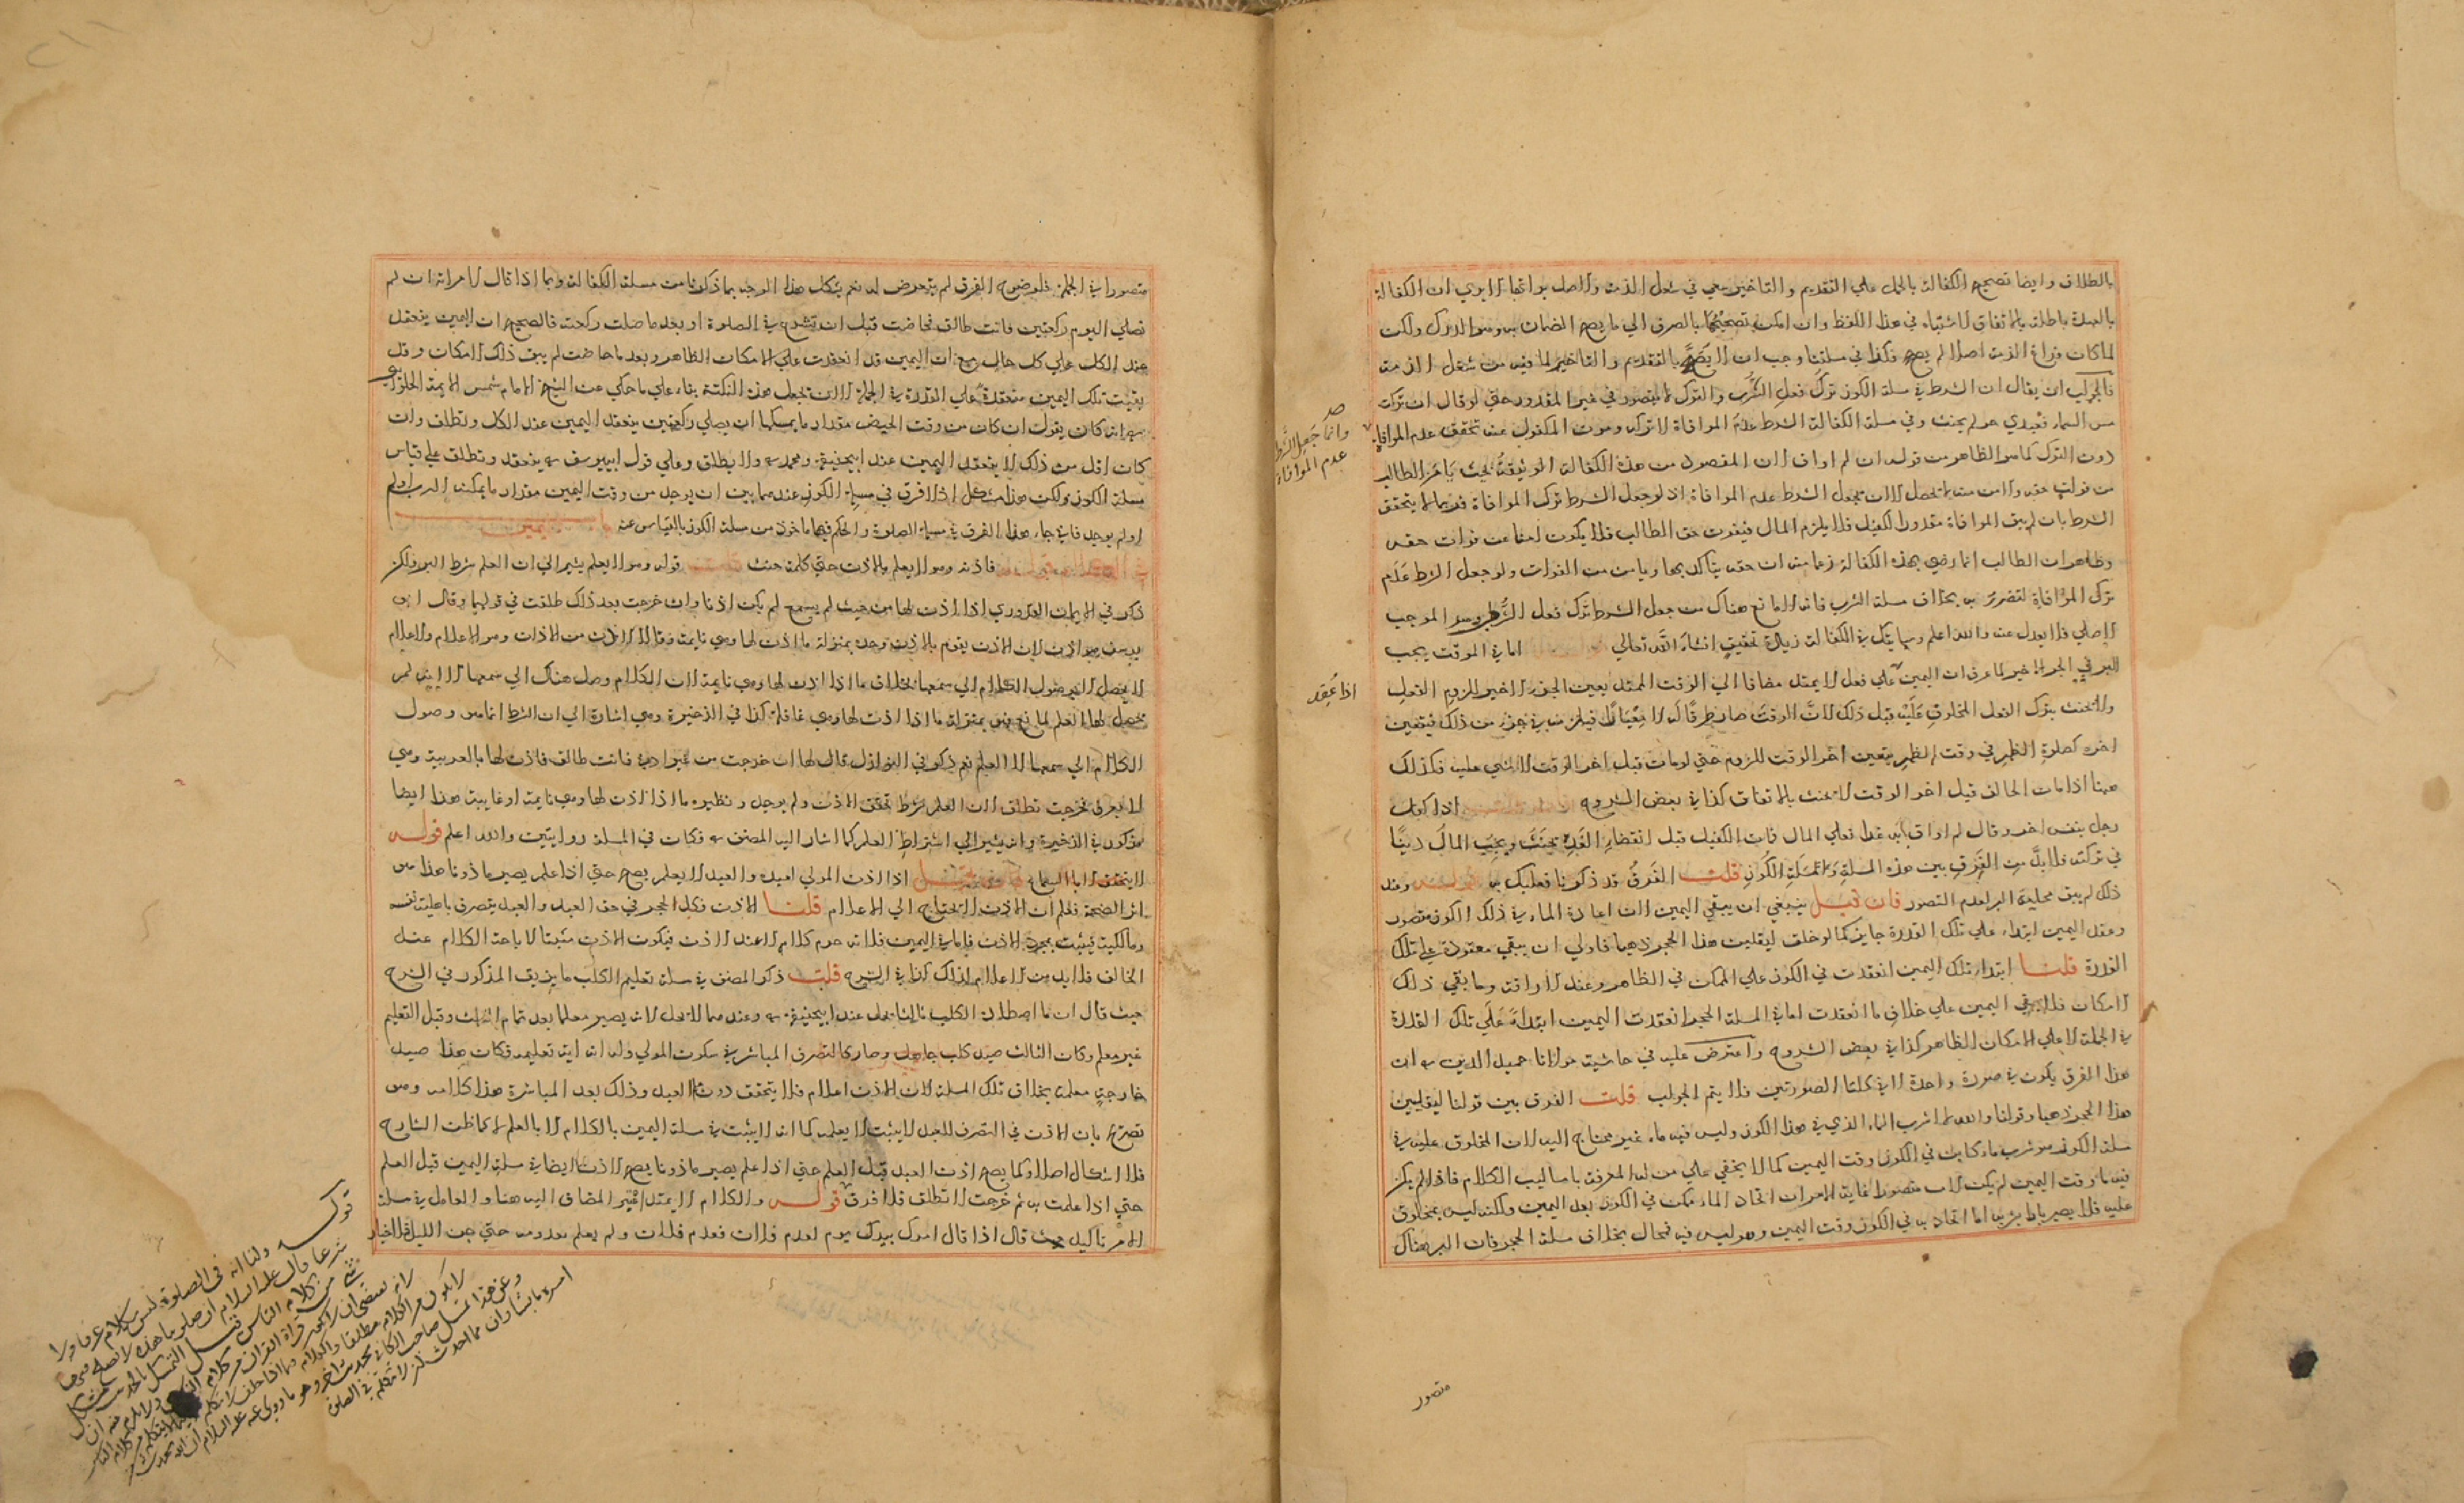 بالطلاق وايضا تصحيح الكفالة بالحمل علي التقديم والتاخير سعي في شغل الذمة والاصل براتها الا يري ان الكفالة
بالعهدة باطلة بالاتفاق لاشتباه في هذا اللفظ وان امكن تصحيحها بالصرف الي ما يصح الضمان به وهو الدرك ولكن
لما كان فراغ الذمة اصلا لم يصح فكذا في مسلتنا وجب ان لا يصح بالتقديم والتاخير لما فيه من شغل الذمة
فالجواب ان يقال ان الشرط في مسلة الكوز ترك فعل الشرب والترك لا يتصور في غير المقدور حتي لو قال ان تركت
مس السماء فعبدي حر لم يحنث وفي مسلة الكفالة الشرط عدم الموافاة لا تركه وبموت المكفول عنه تحقق عدم الموافاة
دون الترك كما هو الظاهر من قوله ان لم اواف لان المقصود من هذه الكفالة التوثقة بحيث يامن الطالب
من فوات حقه والامن منه لا يحصل الا ان يجعل الشرط عدم الموافاة اذ لو جعل الشرط ترك الموافاة فربما لا يتحقق
الشرط بان لم يبق الموافاة مقدور الكفيل فلا يلزم المال فيفوت حق الطالب فلا يكون امنا عن فوات حقه
وظاهر ان الطالب انما رضي بهذه الكفالة زعما منه ان حقه يتاكد بها ويامن من الفوات ولو جعل الشرط عدم
ترك الموافاة لتضرر به بخلاف مسلة الشرب فانه لا مانع هناك من جعل الشرط ترك فعل الشرب وهو الموجب
الاصلي فلا يعدل عنه والله اعلم وسياتيك في الكفالة زيادة تحقيق انشاء الله تعالي اما في الموقت يجب
البر في الجزء الاخير لما عرف ان اليمين علي فعل لا يمتد مضافا الي الوقت الممتد يعين الجزء الاخير للزوم الفعل
ولا يحنث بترك الفعل المحلوف عليه قبل ذلك لان الوقت صار ظرفا له لا معيارا فيلزمه في جزء من ذلك فيتعين
اخره كصلوة الظهر في وقت الظهر يتعين اخر الوقت للزوم حتي لو مات قبل اخر الوقت لا شي عليه فكذلك
ههنا اذا مات الحالف قبل اخر الوقت لا يحنث بالاتفاق كذا في بعض الشروح اذا كفل
رجل بنفس اخر وقال لم اواف به غدا فعلي المال فمات الكفيل قبل انقضاء الغد يحنث ويجب المال دينا
في تركته فلا بد من الفرق بين هذه المسلة ومسلة الكوز قلت الفرق قد ذكرنا فعليك به قوله وعند
ذلك لم يبق محلية البر لعدم التصور فان قيل ينبغي ان يبقي اليمين لان اعادة الماء في ذلك الكوز متصور
وعقد اليمين ابتداء علي تلك القدرة جايز كما لو حلف ليقلبن هذا الحجر ذهبا فاولي ان يبقي معقودة علي تلك
القدرة قلنا ابتداء تلك اليمين انعقدت في الكوز علي الممكن في الظاهر وعند الاراقة وما بقي ذلك
الامكان فلا يبقي اليمين علي خلاف ما انعقدت اما في المسلة الحجر انعقدت اليمين ابتداء علي تلك القدرة
في الجملة لا علي الامكان الظاهر كذا في بعض الشروح واعترض عليه في حاشية مولانا حميد الدين ره ان
هذا الفرق يكون في صورة واحدة لا في كلتا الصورتين فلا يتم الجواب قلت الفرق بين قولنا ليقلبن
هذا الحجر ذهبا وقولنا والله لاشرب الماء الذي في هذا الكوز وليس فيه ماء غير محتاج اليه لان المحلوف عليه في
مسلة الكوز هو شرب ماء كائن في الكوز وقت اليمين كما لا يخفي علي من له المعرفة باساليب الكلام فاذا لم يكن
فيه ماء وقت اليمين لم يكن البر متصورا غاية الامر ان اتحاد الماء ممكن في الكوز بعد اليمين ولكنه ليس بمحلوف
عليه فلا يصير بارا بشربه اما اتحاده في الكوز وقت اليمين وهو ليس فيه فمحال بخلاف مسلة الحجر فان البر هناك
صح
وانما جعل الشرط
عدم الموافاة
اذا عقد
متصور
متصورا في الجملة فلوضوح الفرق لم يتعرض له نعم يشكل هذا الوجه بما ذكرنا من مسلة الكفالة وبما اذا قال لامراته ان لم
تصلي اليوم ركعتين فانت طالق فحاضت قبل ان تشرع في الصلوة او بعد ما صلت ركعة فالصحيح ان اليمين ينعقد
عند الكل علي كل حال مع ان اليمين قد انعقدت علي الامكان الظاهر وبعد ما حاضت لم يبق ذلك الامكان وقد
بقيت تلك اليمين منعقدة علي القدرة في الجملة الا ان تجعل هذه النكتة بناء علي ما حكي عن الشيخ الامام شمس الايمة الحلواني
ره انه كان يقول ان كان من وقت الحيض مقدار ما يمكنها ان يصلي ركعتين ينعقد اليمين عند الكل وتطلق وان
كان اقل من ذلك لا ينعقد اليمين عند ابيحنيفة ومحمد ره ولا يطلق وعلي قول ابي يوسف ره ينعقد وتطلق علي قياس
مسلة الكوز ولكن هذا مشكل اذ لا فرق في مسلة الكوز عندهما بين ان يوجد من وقت اليمين مقدار ما يمكنه الشرب او لم
او لم يوجد فاين جاء هذا الفرق في مسلة الصلوة والحكم فيهما ماخوذ من مسلة الكوز بالقياس عنه
فاذنه وهو لا يعلم بالاذن حتي كلمه حنث قلت قوله وهو لا يعلم يشير الي ان العلم شرط البر ولكن
ذكر في الايمان القدوري اذا اذن لها من حيث لم يسمع لم يكن اذنا وان خرجت بعد ذلك طلقت في قولهما وقال ابو
يوسف هو اذن لان الاذن يقوم بالاذن وحده بمنزلة ما اذن لها وهي نايمة وقالا الاذن من الاذان وهو الاعلام والاعلام
لا يحصل الا بوصول الكلام الي سمعها بخلاف ما اذا اذن لها وهي نايمة لان الكلام وصل هناك الي سمعها الا انه لم
يحصل لها العلم لمانع فهي بمنزلة ما اذا اذن لها وهي غافلة كذا في الذخيرة وهي اشارة الي ان الشرط انما هو وصول
الكلام الي سمعها لا العلم نعم ذكر في النوازل قال لها ان خرجت من غير اذني فانت طالق فاذن لها بالعربية وهي
لا تعرف فخرجت تطلق لان العلم شرط تحقق الاذن ولم يوجد ونظيره ما اذا اذن لها وهي نايمة او غايبة هذا ايضا
مذكور في الذخيرة وانه يشير الي اشتراط العلم كما اشار اليه المصنف ره فكان في المسلة روايتين والله اعلم قوله
لا يتحقق الا بالسماع فان قيل اذا اذن المولي لعبده والعبد لا يعلم يصح حتي اذا علم يصير ماذونا هذا من
اثر الصحة فعلم ان الاذن لا يحتاج الي الاعلام قلنا الاذن فك الحجر في حق العبد والعبد يتصرف باهلية نفسه
ومالكيته فيثبت بمجرد الاذن فاما في اليمين فلانه حرم كلامه الا عند الاذن فيكون الاذن مثبتا لاباحة الكلام عند
الحالف فلا بد من الاعلام لذلك كذا في الشرح قلت ذكر المصنف في مسلة تعليم الكلب ما يزيف المذكور في الشرح
حيث قال ان ما اصطاده الكلب ثالثا يحل عند ابيحنيفة ره وعندهما لا يحل لانه يصير معلما بعد تمام الثلث وقبل التعليم
غير معلم وكان الثالث صيد كلب جاهل وصار كالتصرف المباشر في سكوت المولي وله انه اية تعليمه فكان هذا صيد
جارحة معلمة بخلاف تلك المسلة لان الاذن اعلام فلا يتحقق دون العبد وذلك بعد المباشرة هذا كلامه وهو
تصريح بان الاذن في التصرف للعبد لا يثبت الا بعلمه كما انه لا يثبت في مسلة اليمين بالكلام الا بالعلم لا كما ظن الشارح
فلا اشكال اصلا وكما يصح اذن العبد قبل العلم حتي اذا علم يصير ماذونا يصح الاذن ايضا في مسلة اليمين قبل العلم
حتي اذا علمت به ثم خرجت لا تطلق فلا فرق قوله والكلام لا يمتد المضاف اليه هنا والعامل في مسلة
الامر تاكيد حيث قال اذا قال امرك بيدك يوم يقدم فلان فقدم فلان ولم يعلم بقدومه حتي جن الليل فلا خيار
قوله ولنا انه في الصلوة ليس بكلام عرفا ولا
شرعا قال عليه السلام ان صلوتنا هذه لا يصلح فيها
شي من كلام الناس قيل التمسك بالحديث مشكل
لانه يقتضي ان لا يكون قراة القران من كلام الناس ولا يلزم منه ان